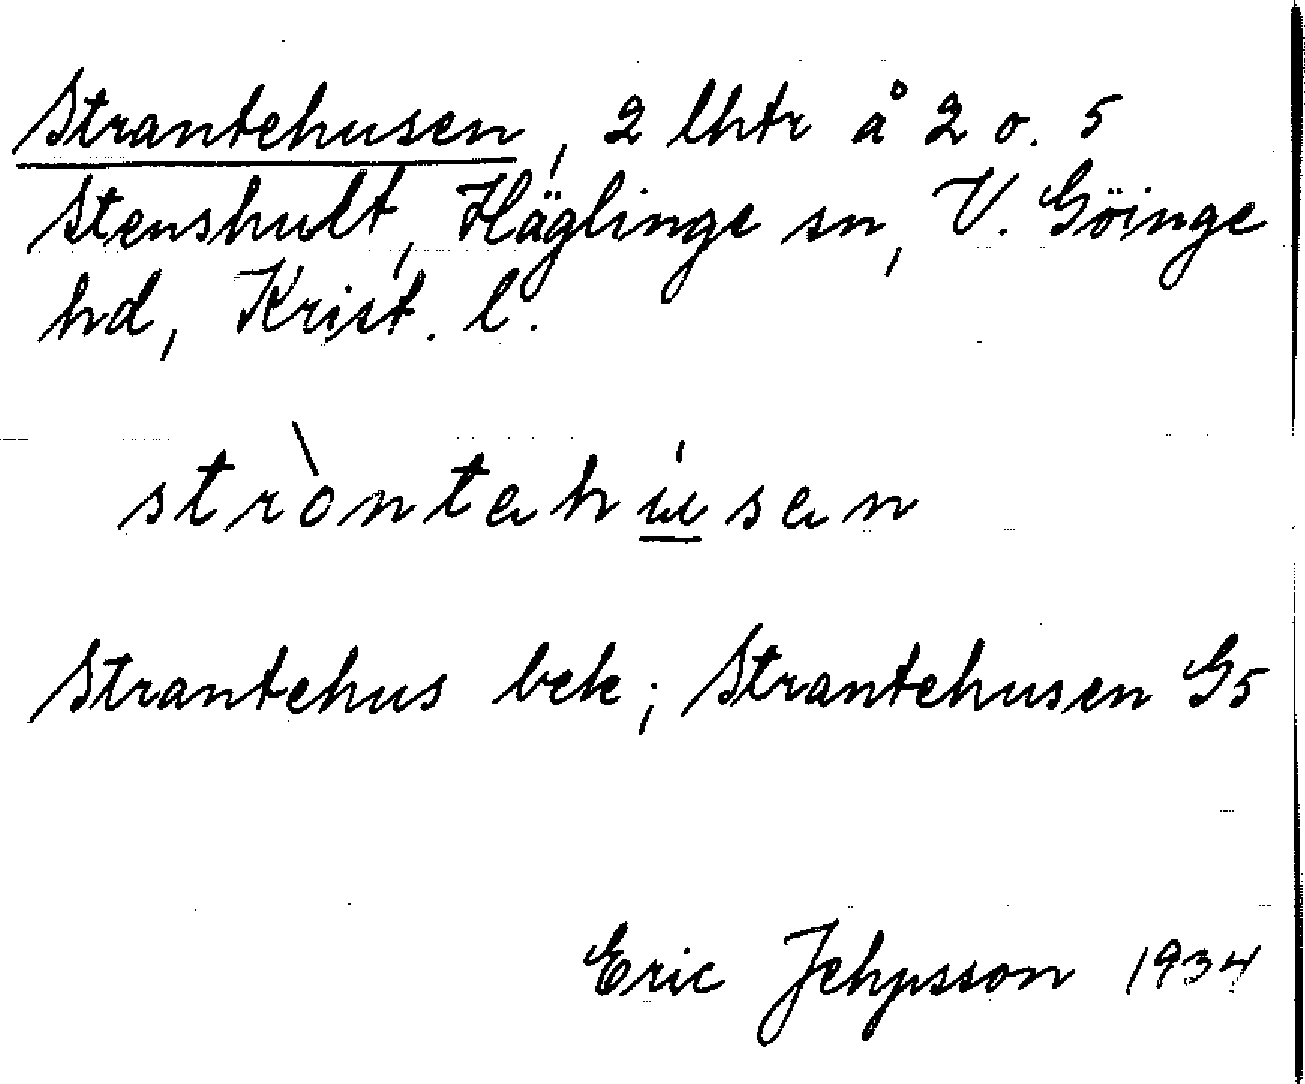 Strantehusen, 2 lhtr å 2 o. 5
Stenshult, Häglinge sn, V. Göinge
hd, Krist. l.
stròntahúsan
Strantehus bek; Strantehusen G5
Eric Jehpsson 1934